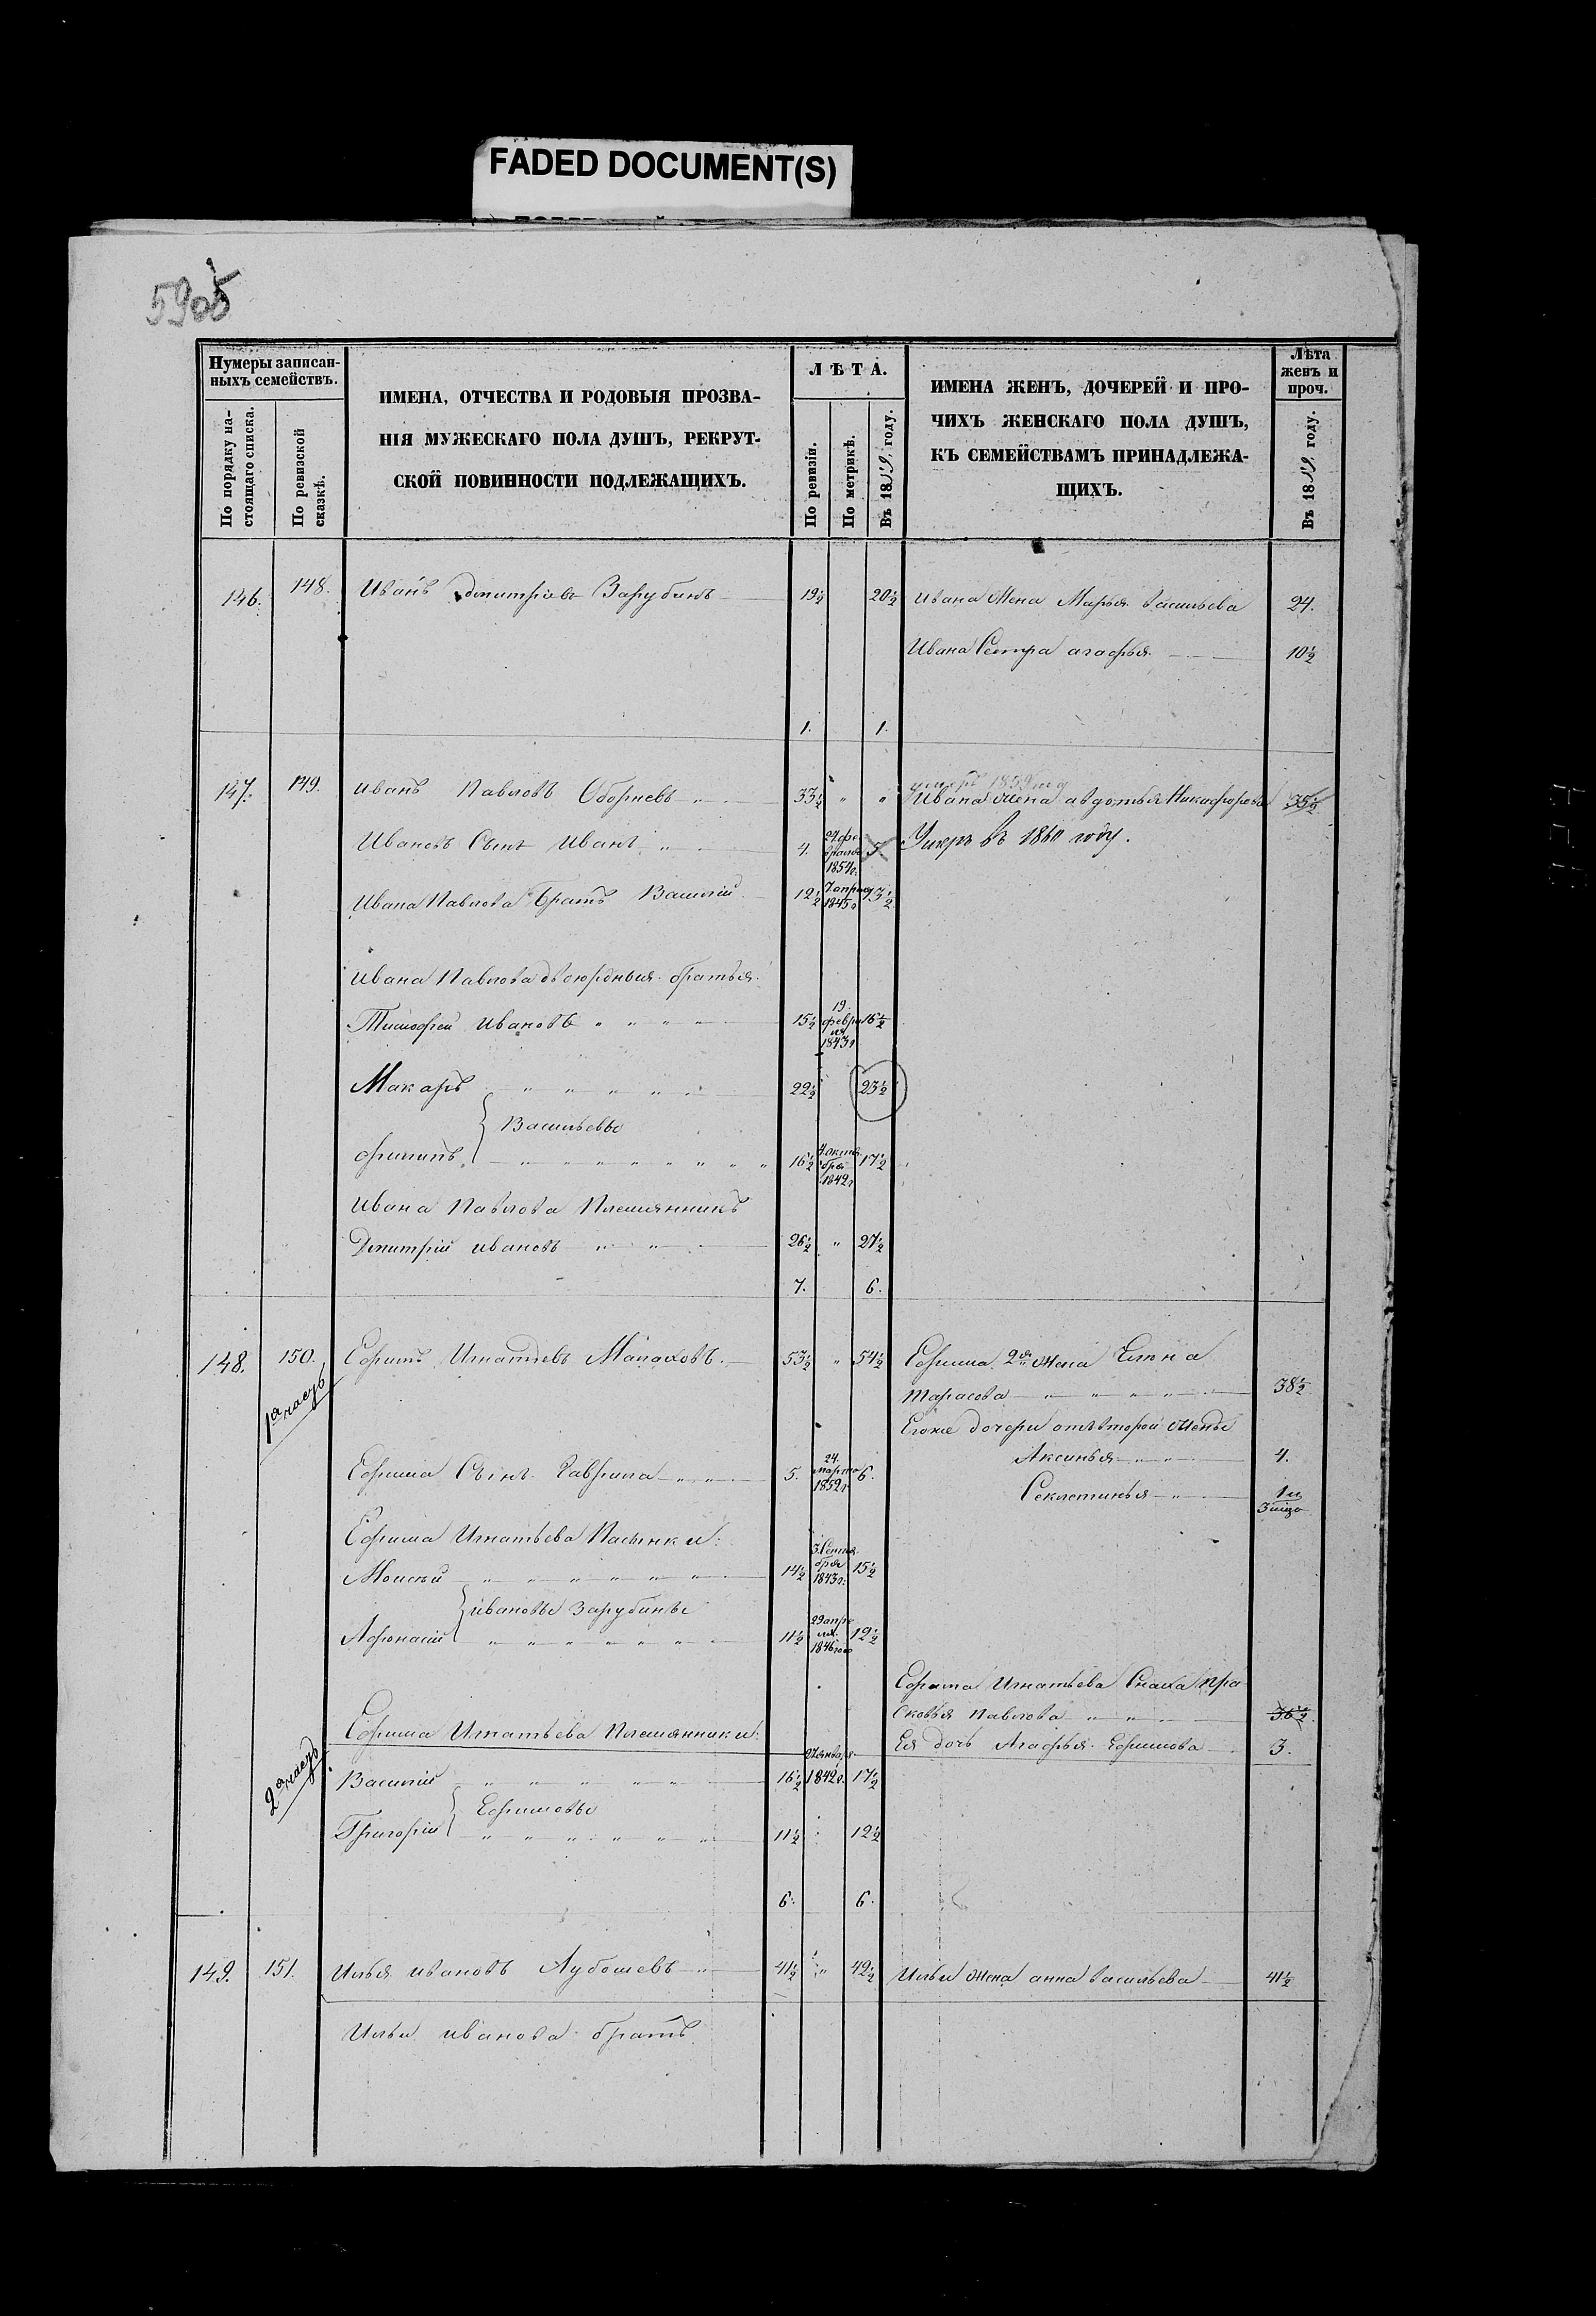 FADED DOCUMENT(S)
5905
Нумеры записан-
ныхъ семействъ.
По порядку на-
стоящаго списка.
По ревизской
сказкѣ.
ИМЕНА, ОТЧЕСТВА И РОДОВЫЯ ПРОЗВА-
НІЯ МУЖЕСКАГО ПОЛА ДУШЪ, РЕКРУТ-
СКОЙ ПОВИННОСТИ ПОДЛЕЖАЩИХЪ.
ЛѢТА.
По ревизіи.
По метрикѣ.
Въ 1859 году.
ИМЕНА ЖЕНЪ, ДОЧЕРЕЙ И ПРО-
ЧИХЪ ЖЕНСКАГО ПОЛА ДУШЪ,
КЪ СЕМЕЙСТВАМЪ ПРИНАДЛЕЖА-
ЩИХЪ.
Лѣта
женъ и
проч.
Въ 1859 году.
146. 148. Иванъ Дмитріевъ Зарубинъ 19½ 20½ Ивана жена Марья Васильева 24.
Ивана Сестра агафья 10½
1. 1.
147. 149. Иванъ Павловъ 33½ " " Ивана жена авдотья Никифорова 35½
Ивановъ Сынъ Иванъ 4. 24 фе-
враля
1854г. 5 Умеръ въ 1860 году.
Ивана Павлова братъ Василій 12½ 7 апреля
1845г 13½
Ивана Павлова двоюрдныя братья
Тимофей Ивановъ " " " " 15½ 19
февра
ля
1843г 16½
Макаръ " " " " " 22½ 23½
Васильевы
филипъ " " " " " " " " 16½ 4 октя
бря
1842г 17½
Ивана Павлова Племянникъ
Дмитрій Ивановъ " " 26½ " 27½
7. 6.
148. 150. Ефимъ Игнатьевъ 53½ " 54½ Ефима 2я жена Елена
1я часть
Тарасова " " " " " 38½
Егоже дочери отъ второй жены
Аксинья " " 4.
Ефима Сынъ Гаврила " " 5. 24.
марта
1852г 6.
Секлетинья "
Ефима Игнатьева Пасынки:
Моисей " " " " " " 14½ 3 Сентя
бря
1843г: 15½
Ивановы Зарубины
Афонасій " " " " " " 11½ 29 апре
ля
1846 12½
Ефима Игнатьева Сноха Пра
сковья Павлова " " 36½
Ефима Игнатьева Племянники:
Ея дочь Агафья Ефимова 3.
2я часть
Василій " " " " " 16½ января
1842г. 17½
Ефимовы
Григорій " " " " " " 11½ 12½
6. 6.
149. 151. Илья Ивановъ Лубошевъ " 41½ " 42½ Ильи жена анна Васильева 41½
Ильи Иванова братъ